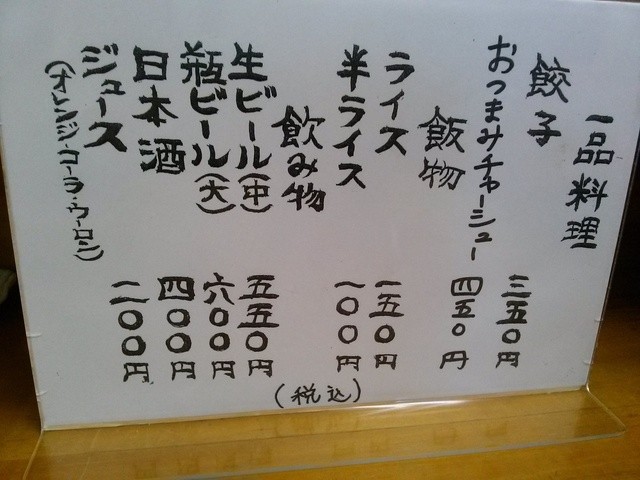 一品料理
餃子 三五〇円
おつまみチャーシュー 四五〇円
飯物
ライス 一五〇円
半ライス 一〇〇円
飲み物
生ビール(中) 五五〇円
瓶ビール(大) 六〇〇円
日本酒 四〇〇円
ジュース 二〇〇円
(オレンジ・コーラ・ウーロン)
(税込)